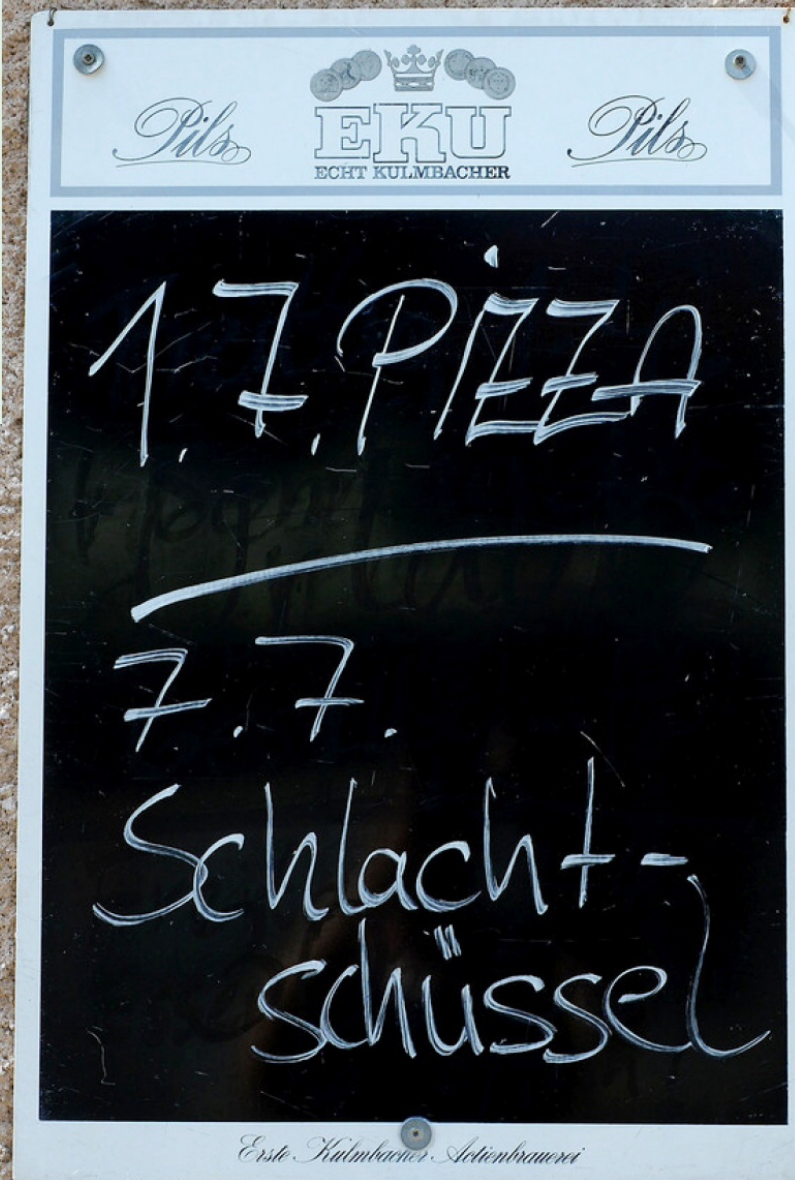 Pils EKU Pils
ECHT KULMBACHER
1.7. PIZZA
7.7.
Schlacht-
schüssel
Erste Kulmbacher Actienbrauerei